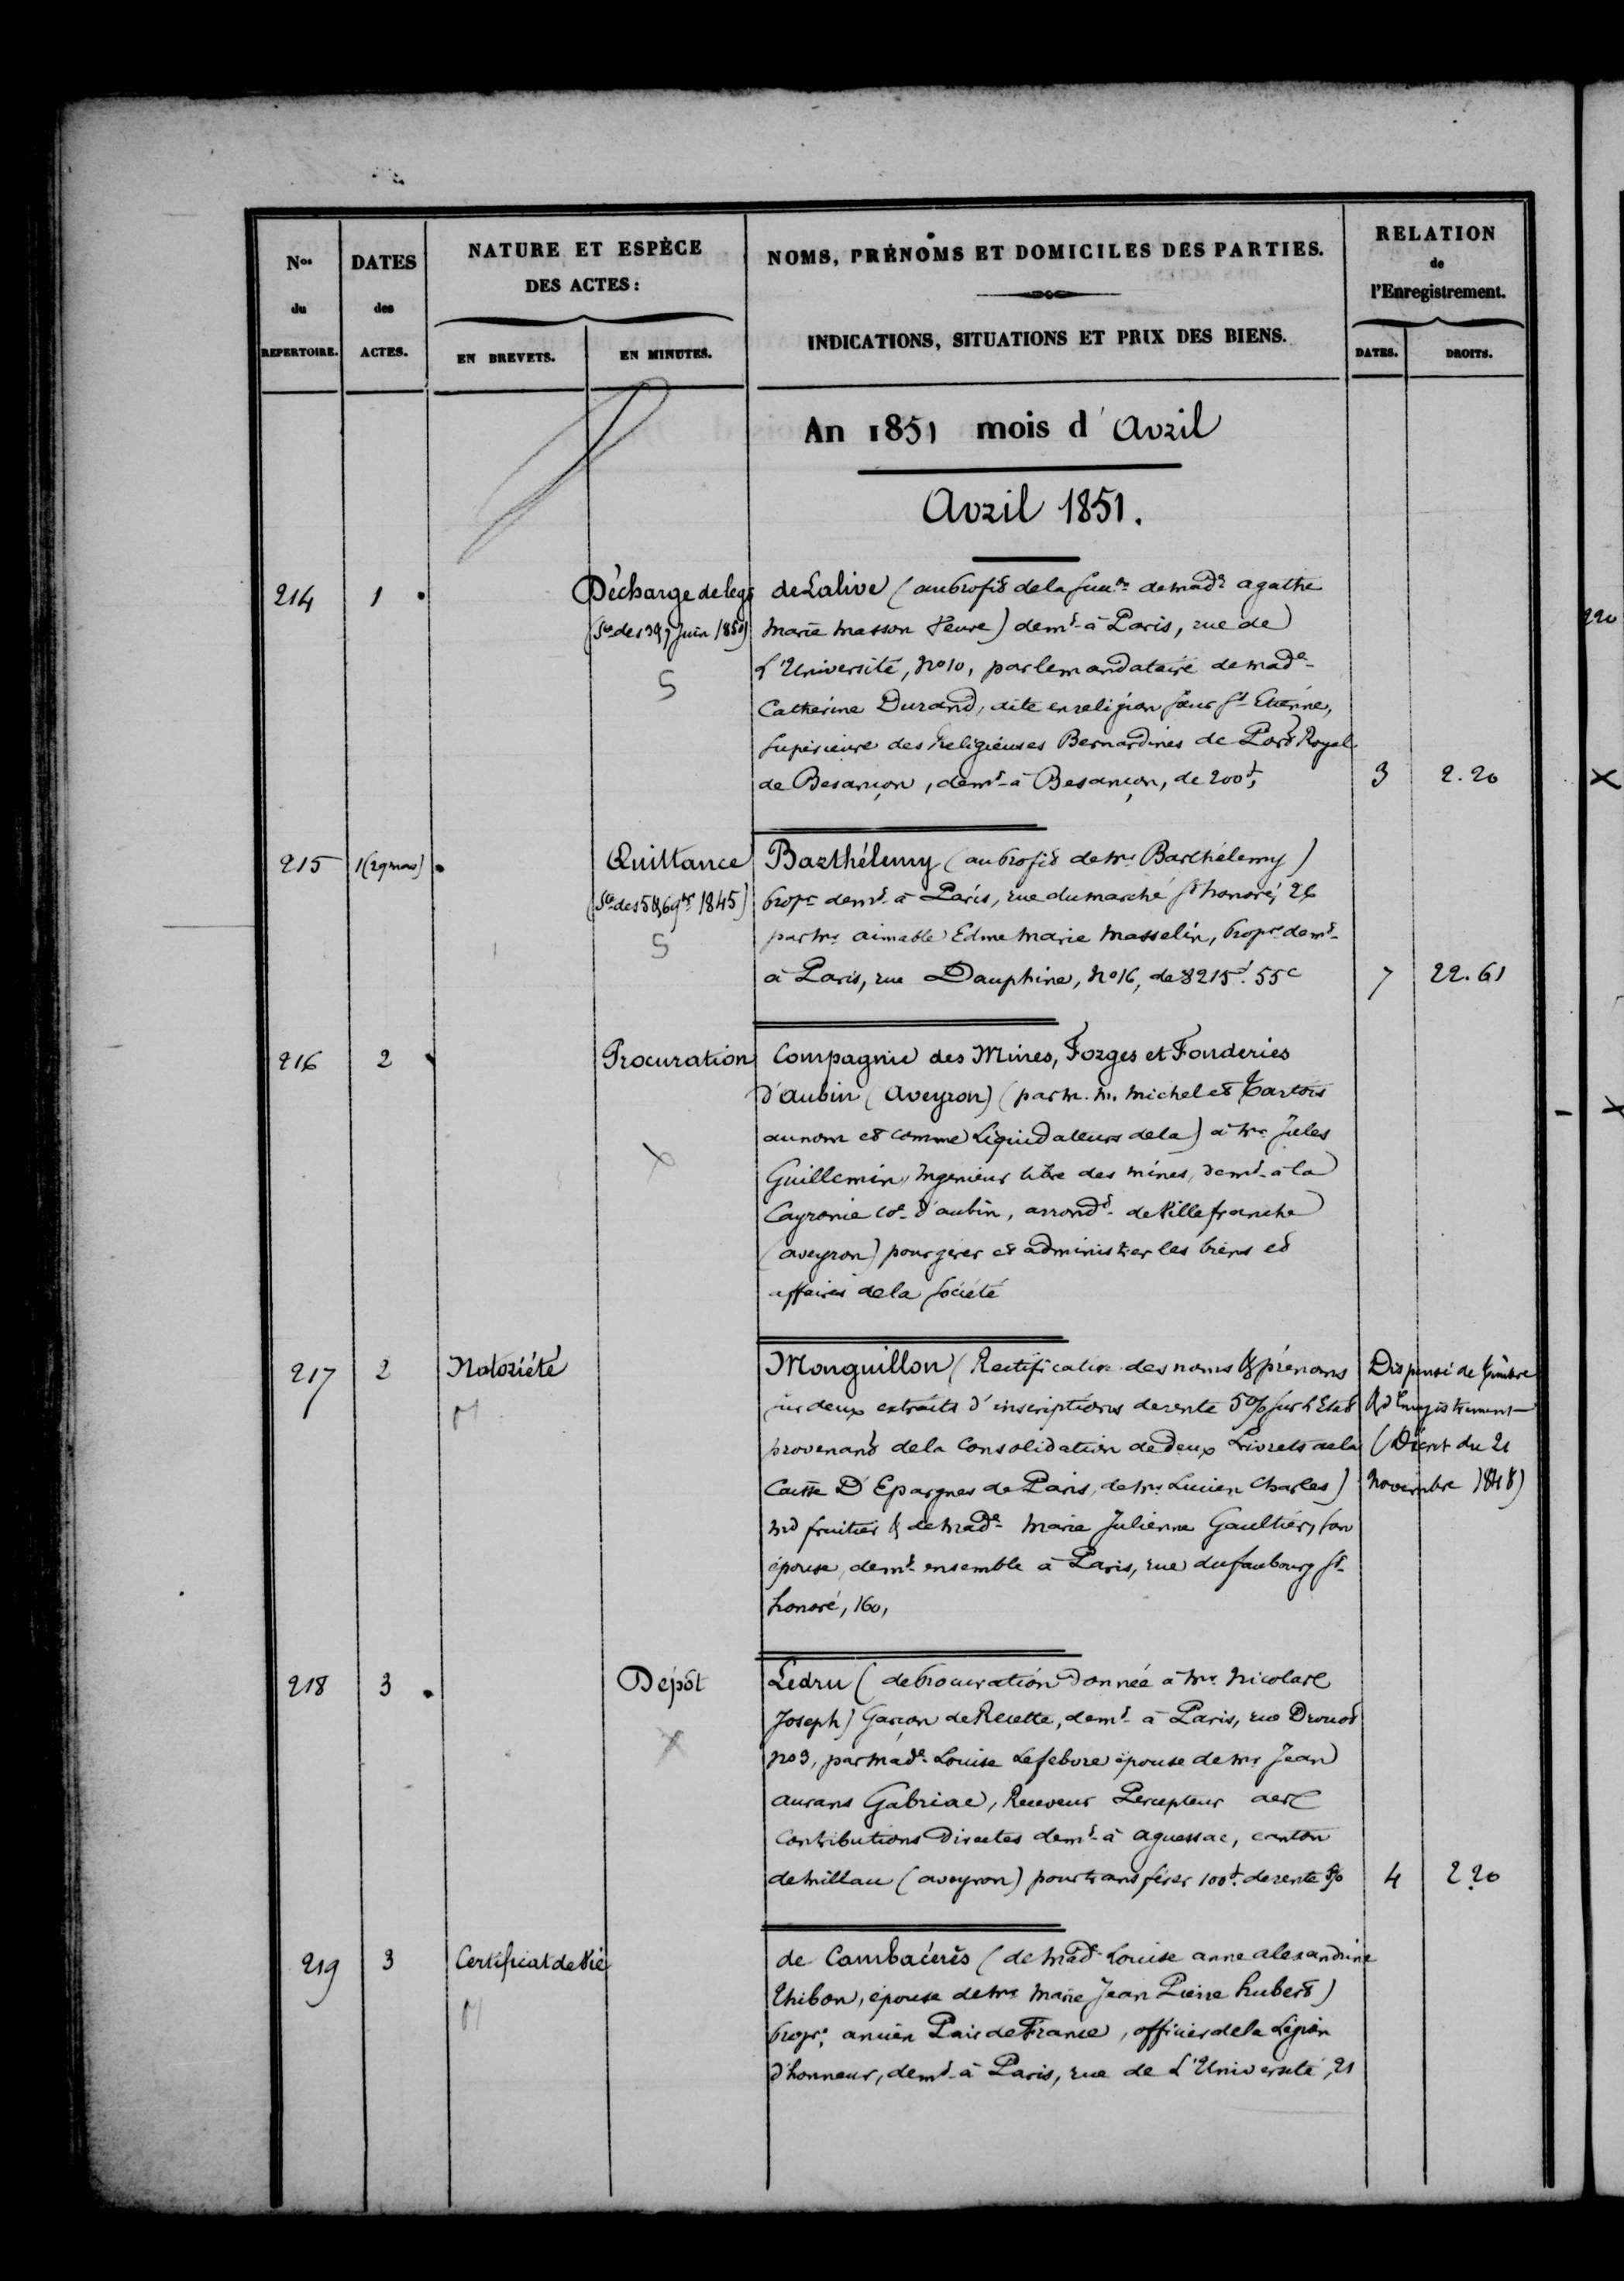 Nos
du
REPERTOIRE.
DATES
des
ACTES.
NATURE ET ESPÈCE
DES ACTES:
EN BREVETS.
EN MINUTES.
NOMS, PRÉNOMS ET DOMICILES DES PARTIES.
INDICATIONS, SITUATIONS ET PRIX DES BIENS.
RELATION
de
l'Enregistrement.
DATES.
DROITS.
An 1851 mois d'Avril
Avril 1851.
214 1 Décharge de legs de Lalive (au profit de la succon de Made agathe
Marie Masson Veuve) demt à Paris, rue de
L'Université, No 10, par le mandataire de Made
Catherine Durand, dite en religion sœur St Etienne,
Supérieure des Religieuses Bernardines de Port Royal
de Besançon, demt à Besançon, de 200f, 3 2.20
215 1 (29 mars) Quittance Barthélemy (au profit de Mr Barthélemy)
(Ste des 5 & 6 9bre 1845) propre demt à Paris, rue du marché St honoré, 26
S par Mr aimable Edme Marie Masselin, propre demt
à Paris, rue Dauphine, No 16, de 8215f. 55c 7 22.61
216 2 Procuration Compagnie des Mines, Forges et Fonderies
d'aubin (Aveyron) (par M. M. Michel et Tartois
au nom et comme Liquidateurs de la) à Mr Jules
Guillemin, Ingenieur libre des mines, demt à la
Cayronie Cne d'aubin, arrondt de Villefranche
(aveyron) pour gérer et administrer les biens et
affaires de la société
217 2 Notoriété Monguillon (Rectification des noms & prénoms Dispensé de timbre
sur deux extraits d'inscriptions de rente 5% sur l'Etat & d'Enregistrement
provenant de la Consolidation de deux Livrets de la (Décret du 21
Caisse D'Epargnes de Paris, de Mr Lucien Charles) Novembre 1848)
Md fruitier & de Made Marie Julienne Gaultier, son
épouse, demt ensemble à Paris, rue du faubourg St
honoré, 160,
218 3 Dépôt Ledru (de Procuration donnée à Mr Nicolas
Joseph) Garçon de Recette, demt à Paris, rue Drouot
No 3, par Made Louise Lefebvre épouse de Mr Jean
Gabriac, Receveur Percepteur des
Contributions Directes demt à aguessac, canton
de Millau (aveyron) pour transférer 100f. de rente 5% 4 2.20
219 3 Certificat de Vie de Cambacérès (de Made Louise anne alexandrine
Thibon, épouse de Mr Marie Jean Pierre hubert)
propre, ancien Pair de France, officier de la Légion
d'honneur, demt à Paris, rue de L'Université, 21
220